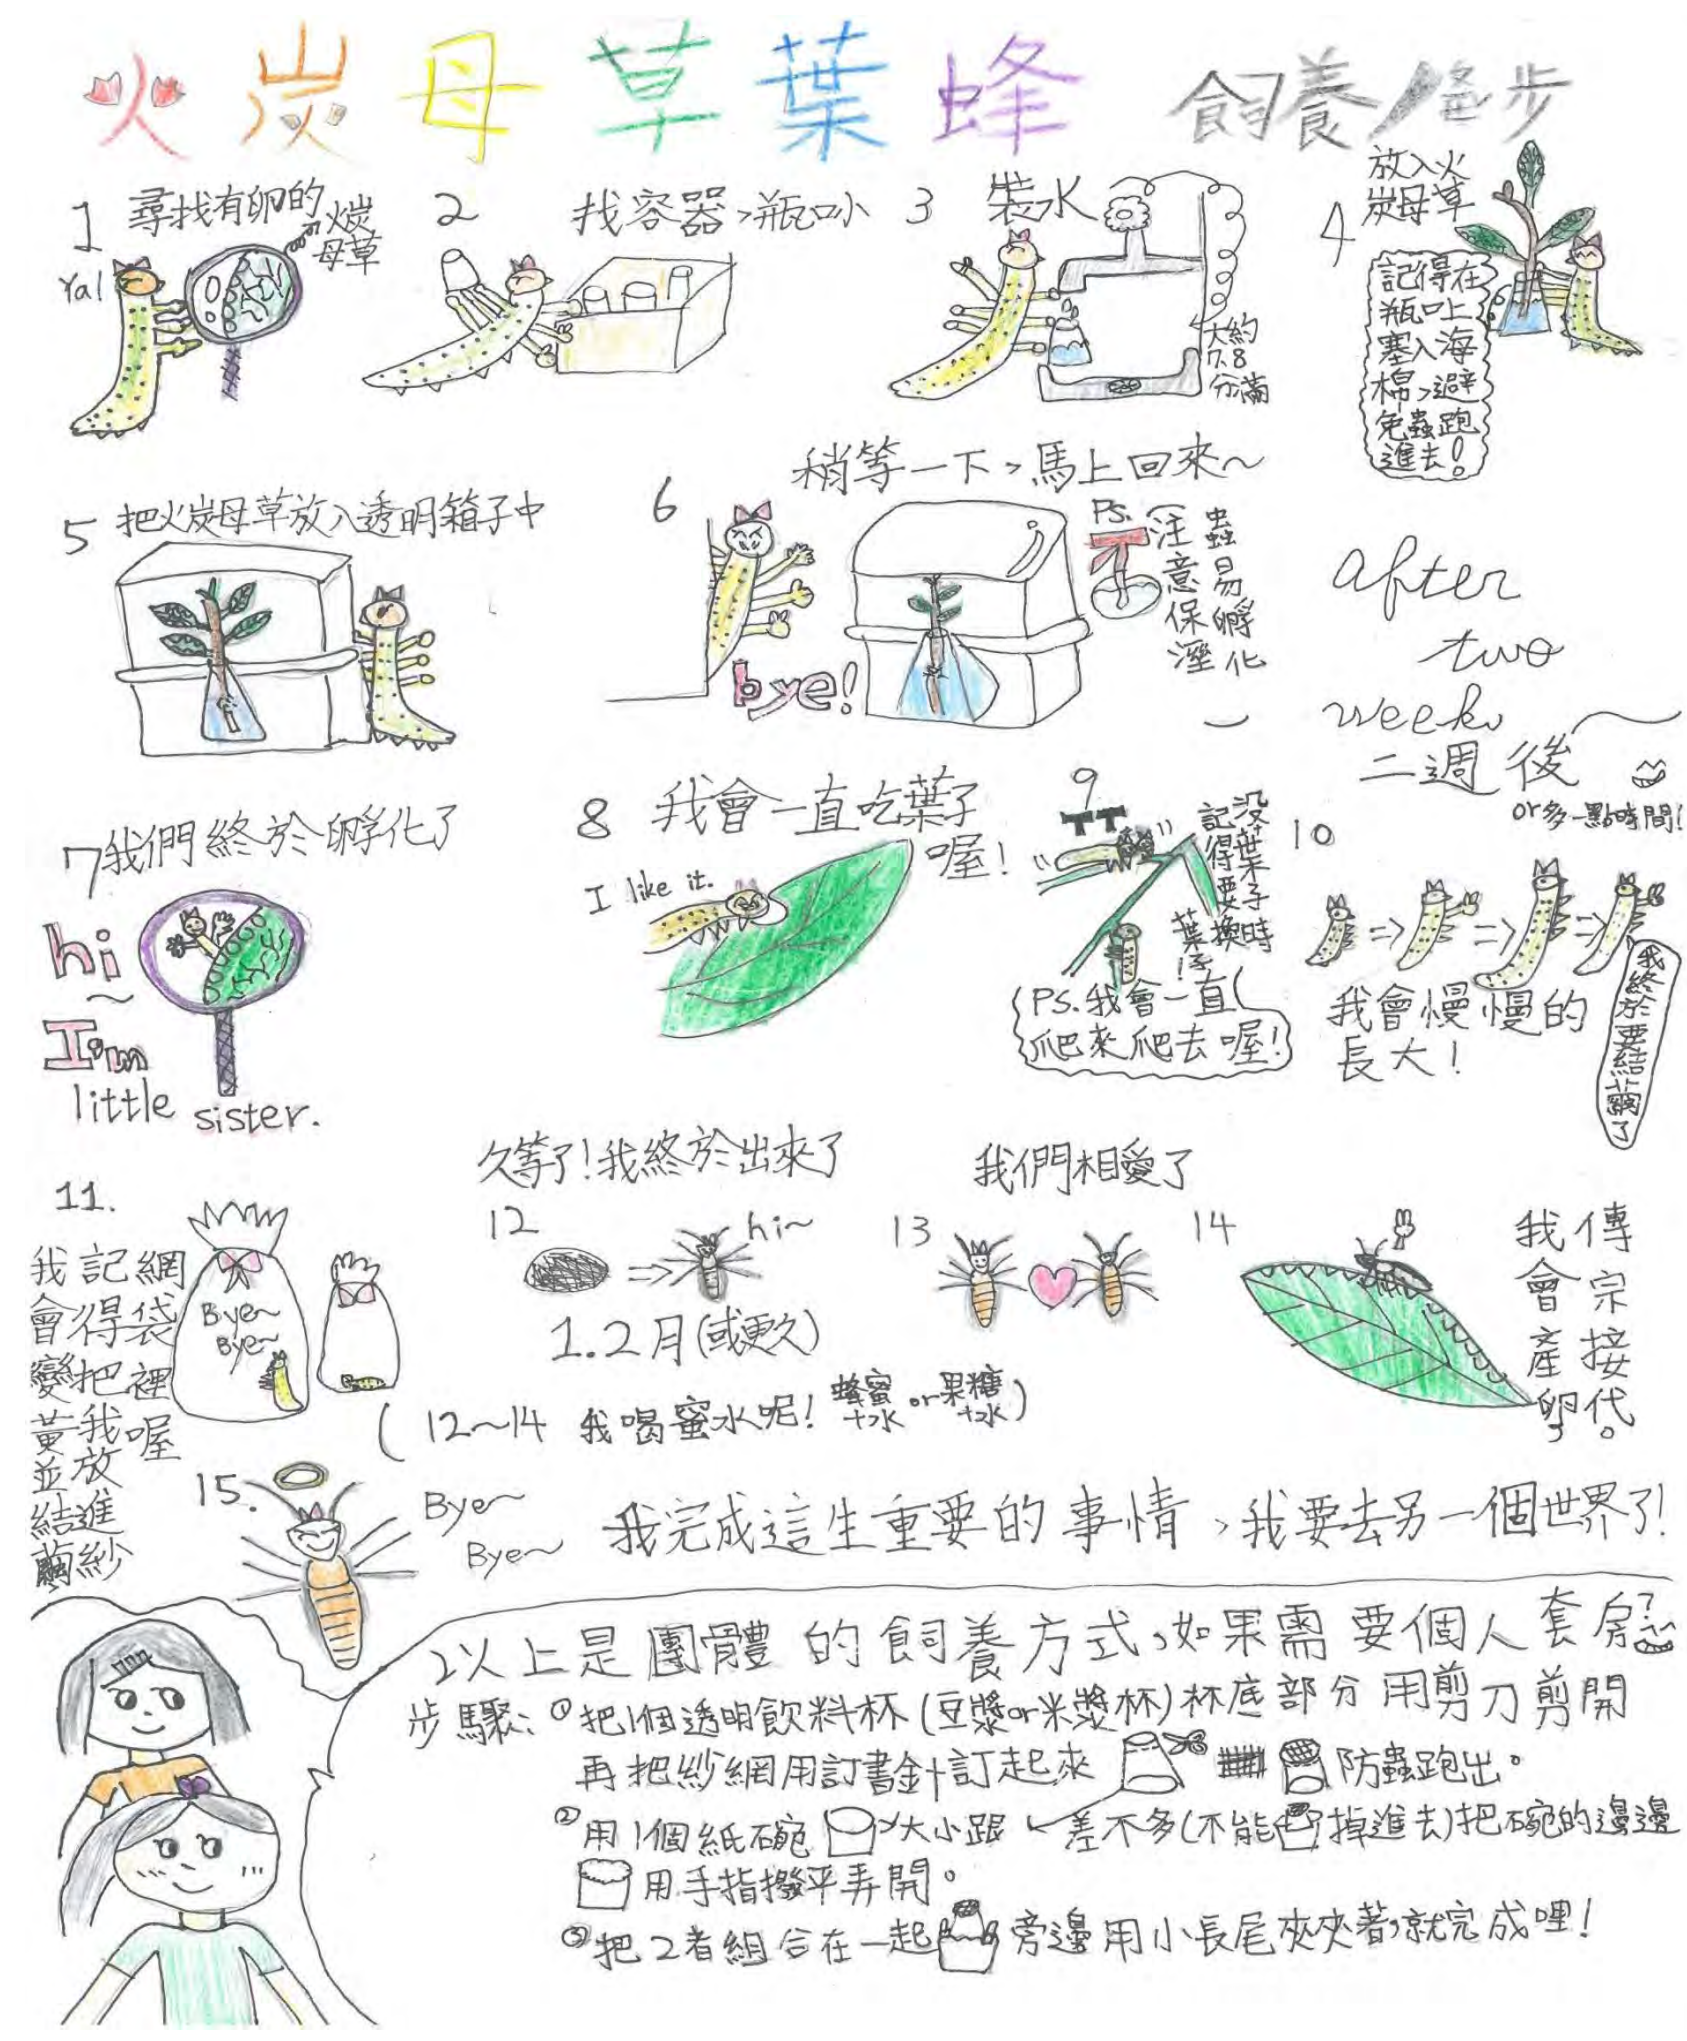 火炭母草葉蜂 飼養ノ絡步
1 尋找有卵的
火炭
母草
Ya!
2 找容器,瓶口小
3 裝水
大約
7.8
分滿
4 放入火
炭母草
記得在
瓶口上
塞入海
棉,避
免蟲跑
進去!
5 把火炭母草放入透明箱子中
6 稍等一下,馬上回來~
bye!
Ps.
注意保溼
蟲易孵化
after
two
week
二週後
or多一點時間!
7 我們終於孵化了
hi
~
I'm
little sister.
8 我會一直吃葉子
喔!
I like it.
9
沒葉子時
記得要換
葉子!
PS.我會一直
爬來爬去喔!
10
我會慢慢的
長大!
我終於要結繭了
11.
我會變黃並結繭
記得把我放進紗
網袋裡喔
Bye~
Bye~
久等了!我終於出來了
12
hi~
1.2月(或更久)
我們相愛了
13
14
傳宗接代。
我會產卵,
(12~14 我喝蜜水呢! 蜂蜜+水 or 果糖+水)
15.
Bye~
Bye~
我完成這生重要的事情,我要去另一個世界了!
以上是團體的飼養方式,如果需要個人套房?
步驟:①把1個透明飲料杯(豆漿or米漿杯)杯底部分用剪刀剪開
再把紗網用訂書針訂起來 防蟲跑出。
②用1個紙碗 大小跟 差不多(不能 掉進去)把碗的邊邊
用手指撥平弄開。
③把2者組合在一起 旁邊用小長尾夾夾著,就完成哩!